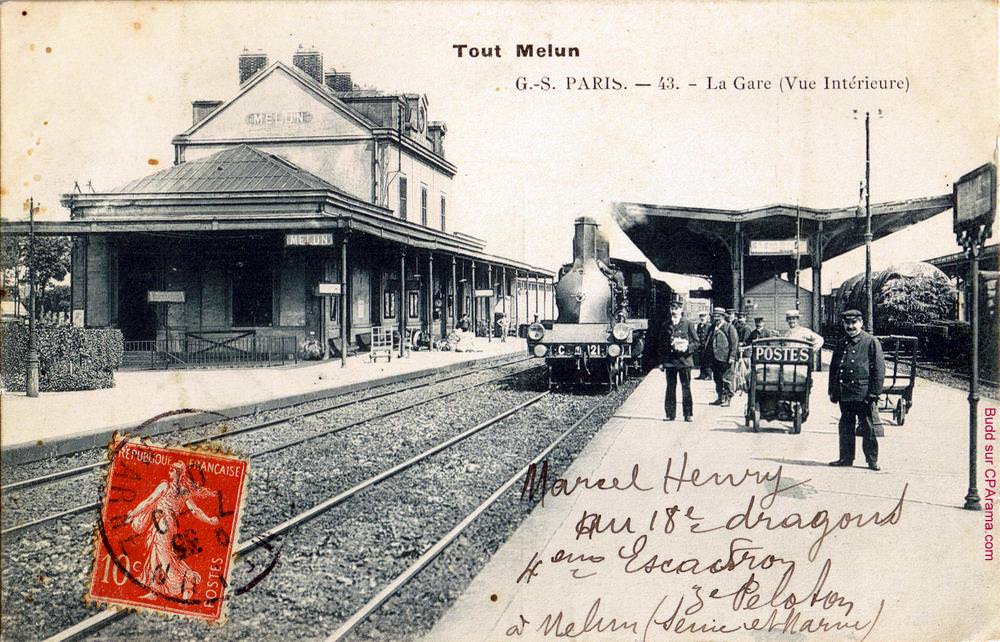 Tout Melun
G.-S. PARIS. — 43. - La Gare (Vue Intérieure)
MELUN
MELUN
C 121
POSTES
REPUBLIQUE FRANÇAISE
10c
POSTES
Marcel Henry
au 18e dragons
4eme Escadron
3e Peloton
à Melun (Seine et Marne)
Budd sur CPArama.com